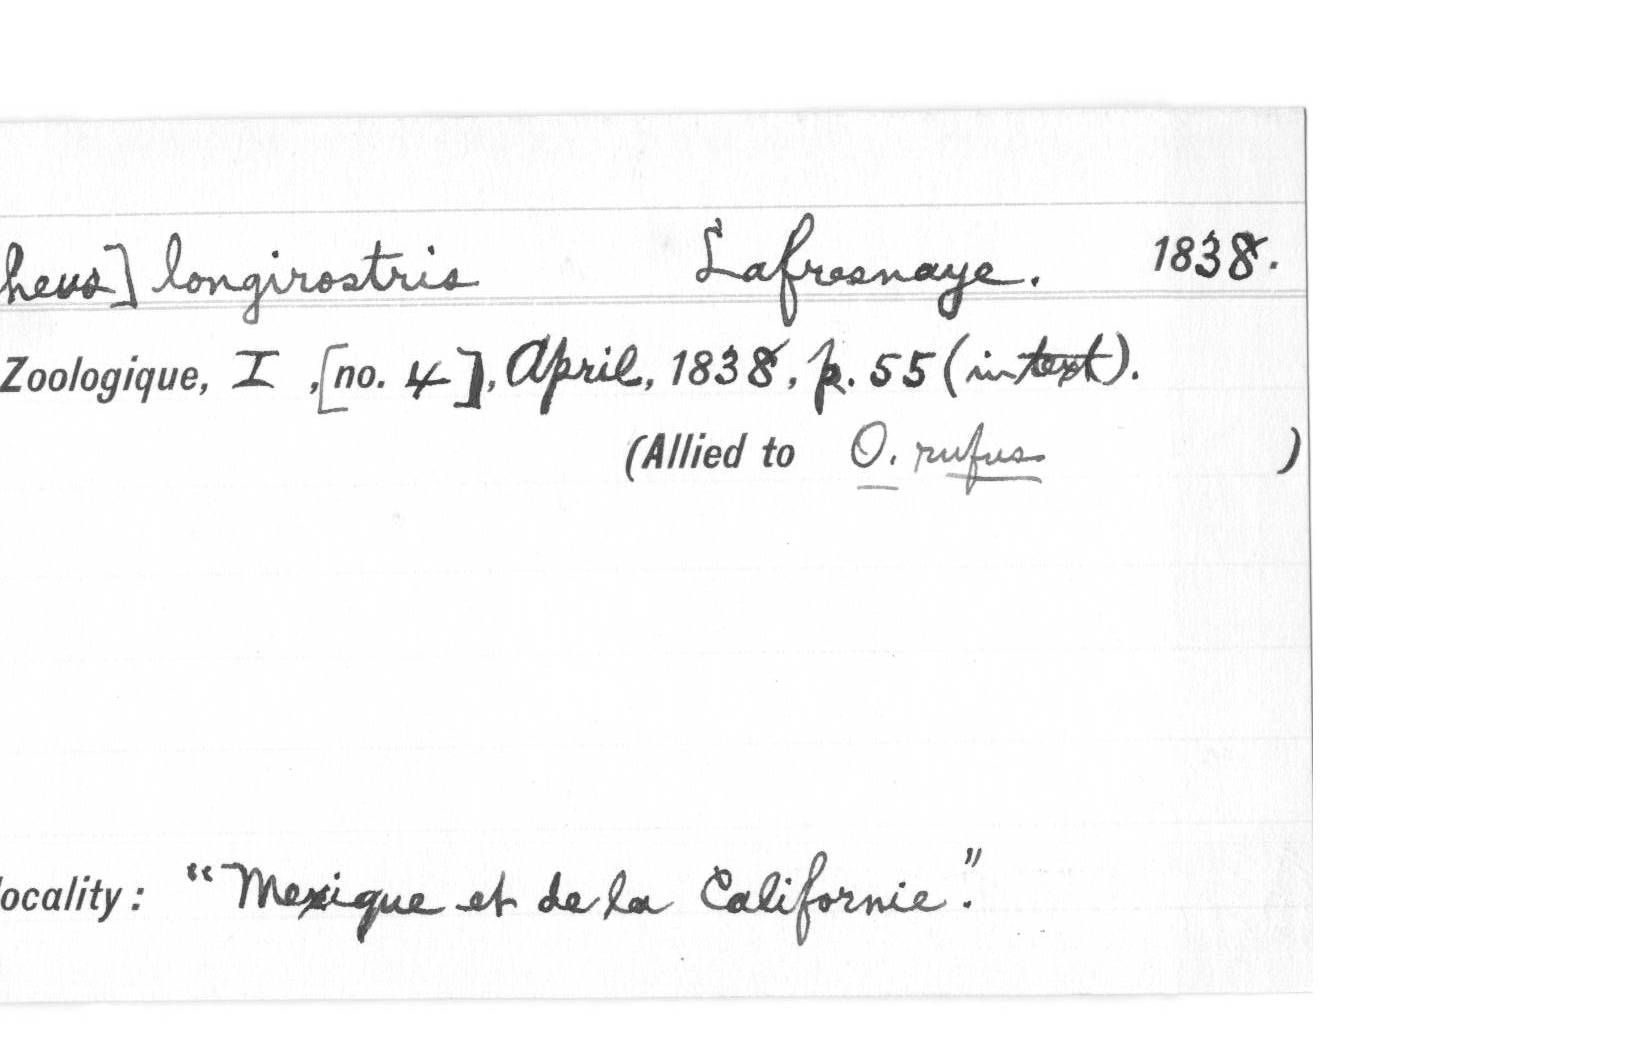 heus] longirostris Lafresnaye. 1838.
Zoologique, I, [no. 4], April, 1838, p. 55 (in text).
(Allied to O. rufus )
ocality: "Mexique et de la Californie."